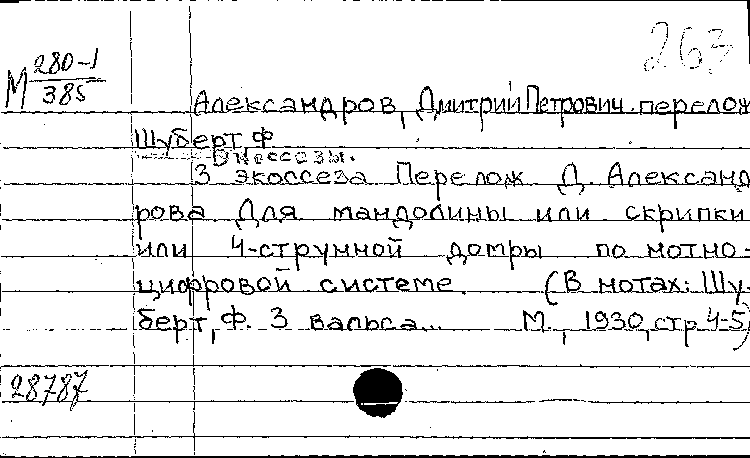 263
М 280-1
385
Александров, Дмитрий Петрович перелож
Шуберт, Ф.
Экоссезы.
3 экоссеза Перелож Д. Александ
рова Для мандолины или скрипки
или 4-струнной домры по нотно-
цифровой системе. (В нотах: Шу-
берт, Ф. 3 вальса... М., 1930, стр 4-5)
28787